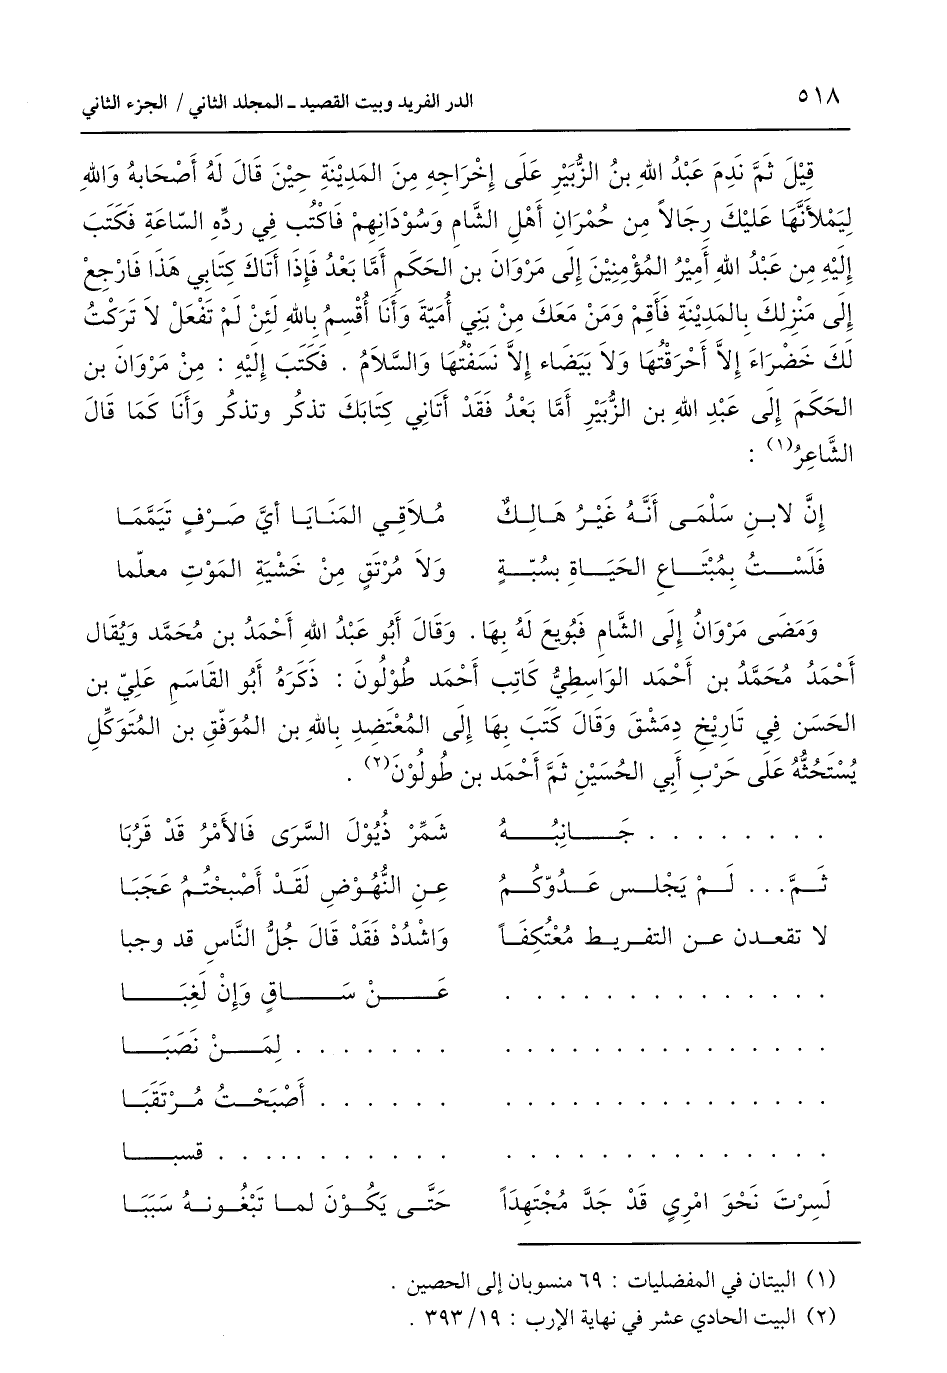 ٥١٨ الدر الفريد وبيت القصيد ـ المجلد الثاني / الجزء الثاني
قِيْلَ ثُمَّ نَدِمَ عَبْدُ اللهِ بنُ الزُّبَيْرِ عَلَى إِخْرَاجِهِ مِنَ المَدِيْنَةِ حِيْنَ قَالَ لَهُ أَصْحَابهُ وَاللهِ
لِيَمْلأَنَّهَا عَلَيْكَ رِجَالاً مِن حُمْرَانِ أَهْلِ الشَّامِ وَسُوْدَانِهِمْ فَاكْتُب فِي ردِّهِ السَّاعَةِ فَكَتَبَ
إِلَيْهِ مِن عَبْدُ اللهِ أَمِيْرُ المُؤْمِنِيْنَ إِلَى مَرْوَانَ بن الحَكَمِ أَمَّا بَعْدُ فَإِذَا أَتَاكَ كِتَابِي هَذَا فَارْجِعْ
إِلَى مَنْزِلِكَ بِالمَدِيْنَةِ فَأَقِمْ وَمَنْ مَعَكَ مِنْ بَنِي أُمَيَّةَ وَأَنَا أُقْسِمُ بِاللهِ لَئِنْ لَمْ تَفْعَلْ لاَ تَرَكْتُ
لَكَ خَضْرَاءَ إِلاَّ أَحْرَقْتُهَا وَلاَ بَيَضَاء إِلاَّ نَسَفْتُهَا وَالسَّلاَمُ . فَكَتَبَ إِلَيْهِ : مِنْ مَرْوَانَ بن
الحَكَمَ إِلَى عَبْدِ اللهِ بن الزُّبَيْرِ أَمَّا بَعْدُ فَقَدْ أَتَانِي كِتَابكَ تذكُر وتذكُر وَأَنَا كَمَا قَالَ
الشَّاعِرُ(١) :
إِنَّ لابنِ سَلْمَى أَنَّهُ غَيْرُ هَالِكٌ مُلاَقِي المَنَايَا أيَّ صَرْفٍ تَيَمَّمَا
فَلَسْتُ بِمُبْتَاعِ الحَيَاةِ بسُبَّةٍ وَلاَ مُرْتَقٍ مِنْ خَشْيَةِ المَوْتِ معلّما
وَمَضَى مَرْوَانُ إِلَى الشَّامِ فَبُويعَ لَهُ بِهَا . وَقَالَ أَبُو عَبْدُ اللهِ أَحْمَدُ بن مُحَمَّد وَيُقَال
أَحْمَدُ مُحَمَّدُ بن أَحْمَد الوَاسِطِيُّ كَاتِب أَحْمَد طُوْلُونَ : ذَكَرَهُ أَبُو القَاسَمِ عَلِيّ بن
الحَسَن فِي تَارِيْخِ دِمَشْقَ وَقَالَ كَتَبَ بِهَا إِلَى المُعْتَضِدِ بِاللهِ بن المُوَفّقِ بن المُتَوَكِّلِ
يُسْتَحثُّهُ عَلَى حَرْبِ أَبِي الحُسَيْنِ ثمَّ أَحْمَد بن طُولُوْنَ(٢) .
. . . . . . . . جَانِبُهُ شَمِّرْ ذُيُوْلَ السَّرَى فَالأَمْرُ قَدْ قَرُبَا
ثَمَّ . . . لَمْ يَجْلِس عَدُوّكُمُ عِنِ النُّهُوْضِ لَقَدْ أَصْبَحْتُمُ عَجَبَا
لا تقعدن عن التفريط مُعْتكِفَاً وَاشْدُدْ فَقَدْ قَالَ جُلُّ النَّاسِ قد وجبا
. . . . . . . . . . . . . . عَنْ سَاقٍ وَإِنْ لَغِبَا
. . . . . . . . . . . . . . . . . . . . . لِمَنْ نَصَبَا
. . . . . . . . . . . . . . . . . . . . أَصْبَحْتُ مُرْتَقَبَا
. . . . . . . . . . . . . . . . . . . . . . . . قسبا
لَسِرْتَ نَحْوَ امْرِي قَدْ جَدَّ مُجْتَهِدَاً حَتَّى يَكُوْنَ لما تَبْغُونهُ سَبَبَا
(١) البيتان في المفضليات : ٦٩ منسوبان إلى الحصين .
(٢) البيت الحادي عشر في نهاية الإرب : ١٩/ ٣٩٣ .